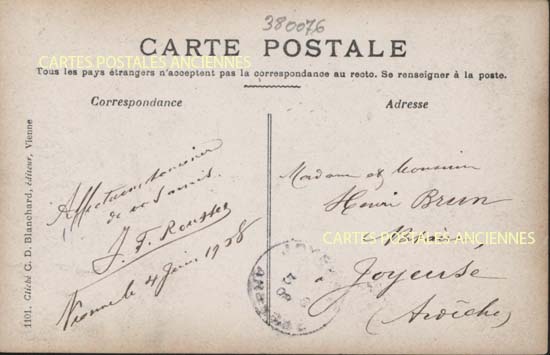 380076
CARTE POSTALE
CARTES POSTALES ANCIENNES
Tous les pays étrangers n'acceptent pas la correspondance au recto. Se renseigner à la poste.
Correspondance
Affectueux souvenir
de vos amis.
J. F. Rousset
Vienne le 4 Juin 1908
1101. Cliché C. D. Blanchard, éditeur, Vienne
Adresse
Madame et Monsieur
Henri Brun
CARTES POSTALES ANCIENNES
à Joyeuse
(Ardèche)
JOYEUSE